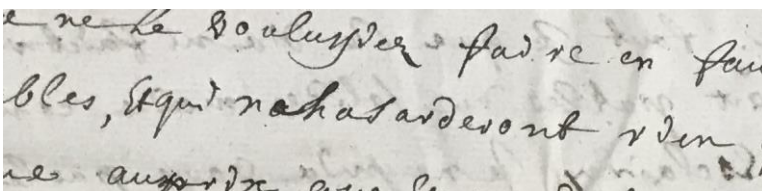 e ne le voulussiez faire en fau
bles, et qui nahasarderont rien
ue